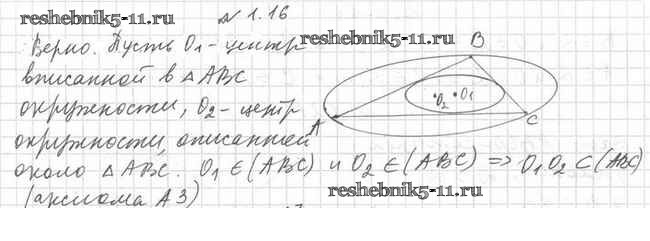 reshebnik5-11.ru
№ 1.16
Верно. Пусть O1 - центр
reshebnik5-11.ru
вписанной в △ABC
окружности, O2 - центр
окружности, описанной
около △ABC. O1 ∈ (ABC) и O2 ∈ (ABC) => O1O2 ⊂ (ABC)
(аксиома A3)
reshebnik5-11.ru
B
O2
O1
A
C